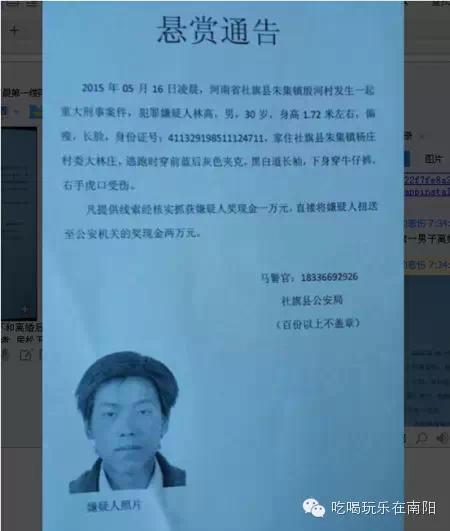 悬赏通告
2015 年 05 月 16 日凌晨，河南省社旗县朱集镇殷河村发生一起
重大刑事案件，犯罪嫌疑人林高，男，30 岁，身高 1.72 米左右，偏
瘦，长脸，身份证号：411329198511124711，家住社旗县朱集镇杨庄
村委大林庄，逃跑时穿前蓝后灰色夹克，黑白道长袖，下身穿牛仔裤，
右手虎口受伤。
凡提供线索经核实抓获嫌疑人奖现金一万元，直接将嫌疑人扭送
至公安机关的奖现金两万元。
马警官：18336692926
社旗县公安局
（百份以上不盖章）
嫌疑人照片
图片
吃喝玩乐在南阳